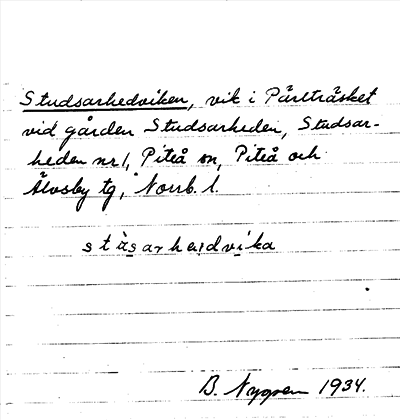 Studsarhedviken, vik i Pärlträsket
vid gården Studsarheden, Studsar-
heden nr 1, Piteå sn, Piteå och
Älvsby tg, Norrb. l.
B. Nygren 1934.